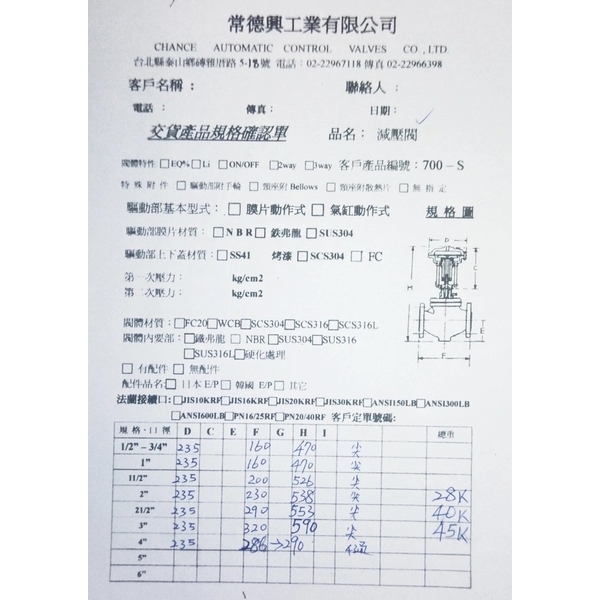 常德興工業有限公司
CHANCE AUTOMATIC CONTROL VALVES CO.,LTD.
台北縣泰山鄉磚雅厝路5-18號 電話：02-22967118 傳真 02-22966398
客戶名稱： 聯絡人：
電話： 傳真： 日期：
交貨產品規格確認單 品名：減壓閥
閥體特性 □EQ% □Li □ON/OFF □2way □3way 客戶產品編號：700-S
特殊附件 □驅動部附手輪 □頸座附Bellows □頸座附散熱片 □無指定
驅動部基本型式：□膜片動作式 □氣缸動作式 規格圖
驅動部膜片材質：□NBR □鉄弗龍 □SUS304
驅動部上下蓋材質：□SS41 烤漆 □SCS304 □FC
第一次壓力： kg/cm2
第二次壓力： kg/cm2
D
H
C
E
F
閥體材質：□FC20□WCB□SCS304□SCS316□SCS316L
閥體內要部：□鐵弗龍 □NBR□SUS304□SUS316
□SUS316L□硬化處理
□有配件 □無配件
配件品名：□日本E/P□韓國 E/P □其它
法蘭接續口：□JIS10KRF□JIS16KRF□JIS20KRF□JIS30KRF□ANSI150LB□ANSI300LB
□ANSI600LB□PN16/25RF□PN20/40RF 客戶定單號碼：
規格·口徑 D C E F G H I 總重
1/2"－3/4" 235 160 470 尖
1" 235 160 470 尖
11/2" 235 200 526 尖
2" 235 230 538 尖 28K
21/2" 235 290 553 尖 40K
3" 235 320 590 尖 45K
4" 235 286→290
5"
6"